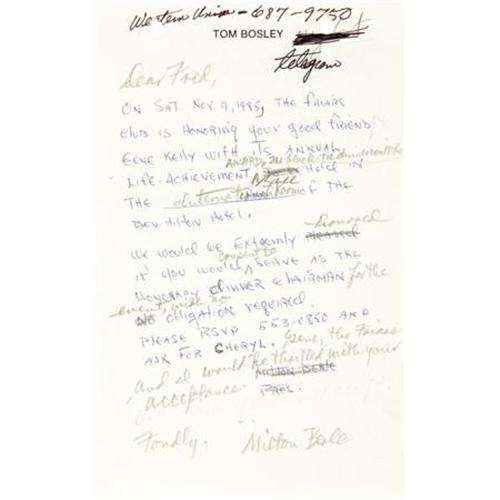 Western Union - 687-9750
TOM BOSLEY
telegram
Dear Fred,
ON SAT. NOV 9, 1985, THE FRIARS
CLUB IS HONORING YOUR GOOD FRIEND
GENE KELLY WITH ITS ANNUAL
LIFE-ACHIEVEMENT AWARD, The black-tie dinner will be HELD IN
THE International Room OF THE
BEV. HILTON HOTEL.
WE WOULD BE EXTREMELY PLEASED honored
IF YOU WOULD consent to SERVE AS THE
HONORARY DINNER CHAIRMAN for the
event, with no
NO OBLIGATION REQUIRED.
PLEASE RSVP 553-0850 AND
ASK FOR CHERYL. Gene, the Friars
and I would be thrilled with your
acceptance. MILTON BERLE
PRES.
Fondly, Milton Berle